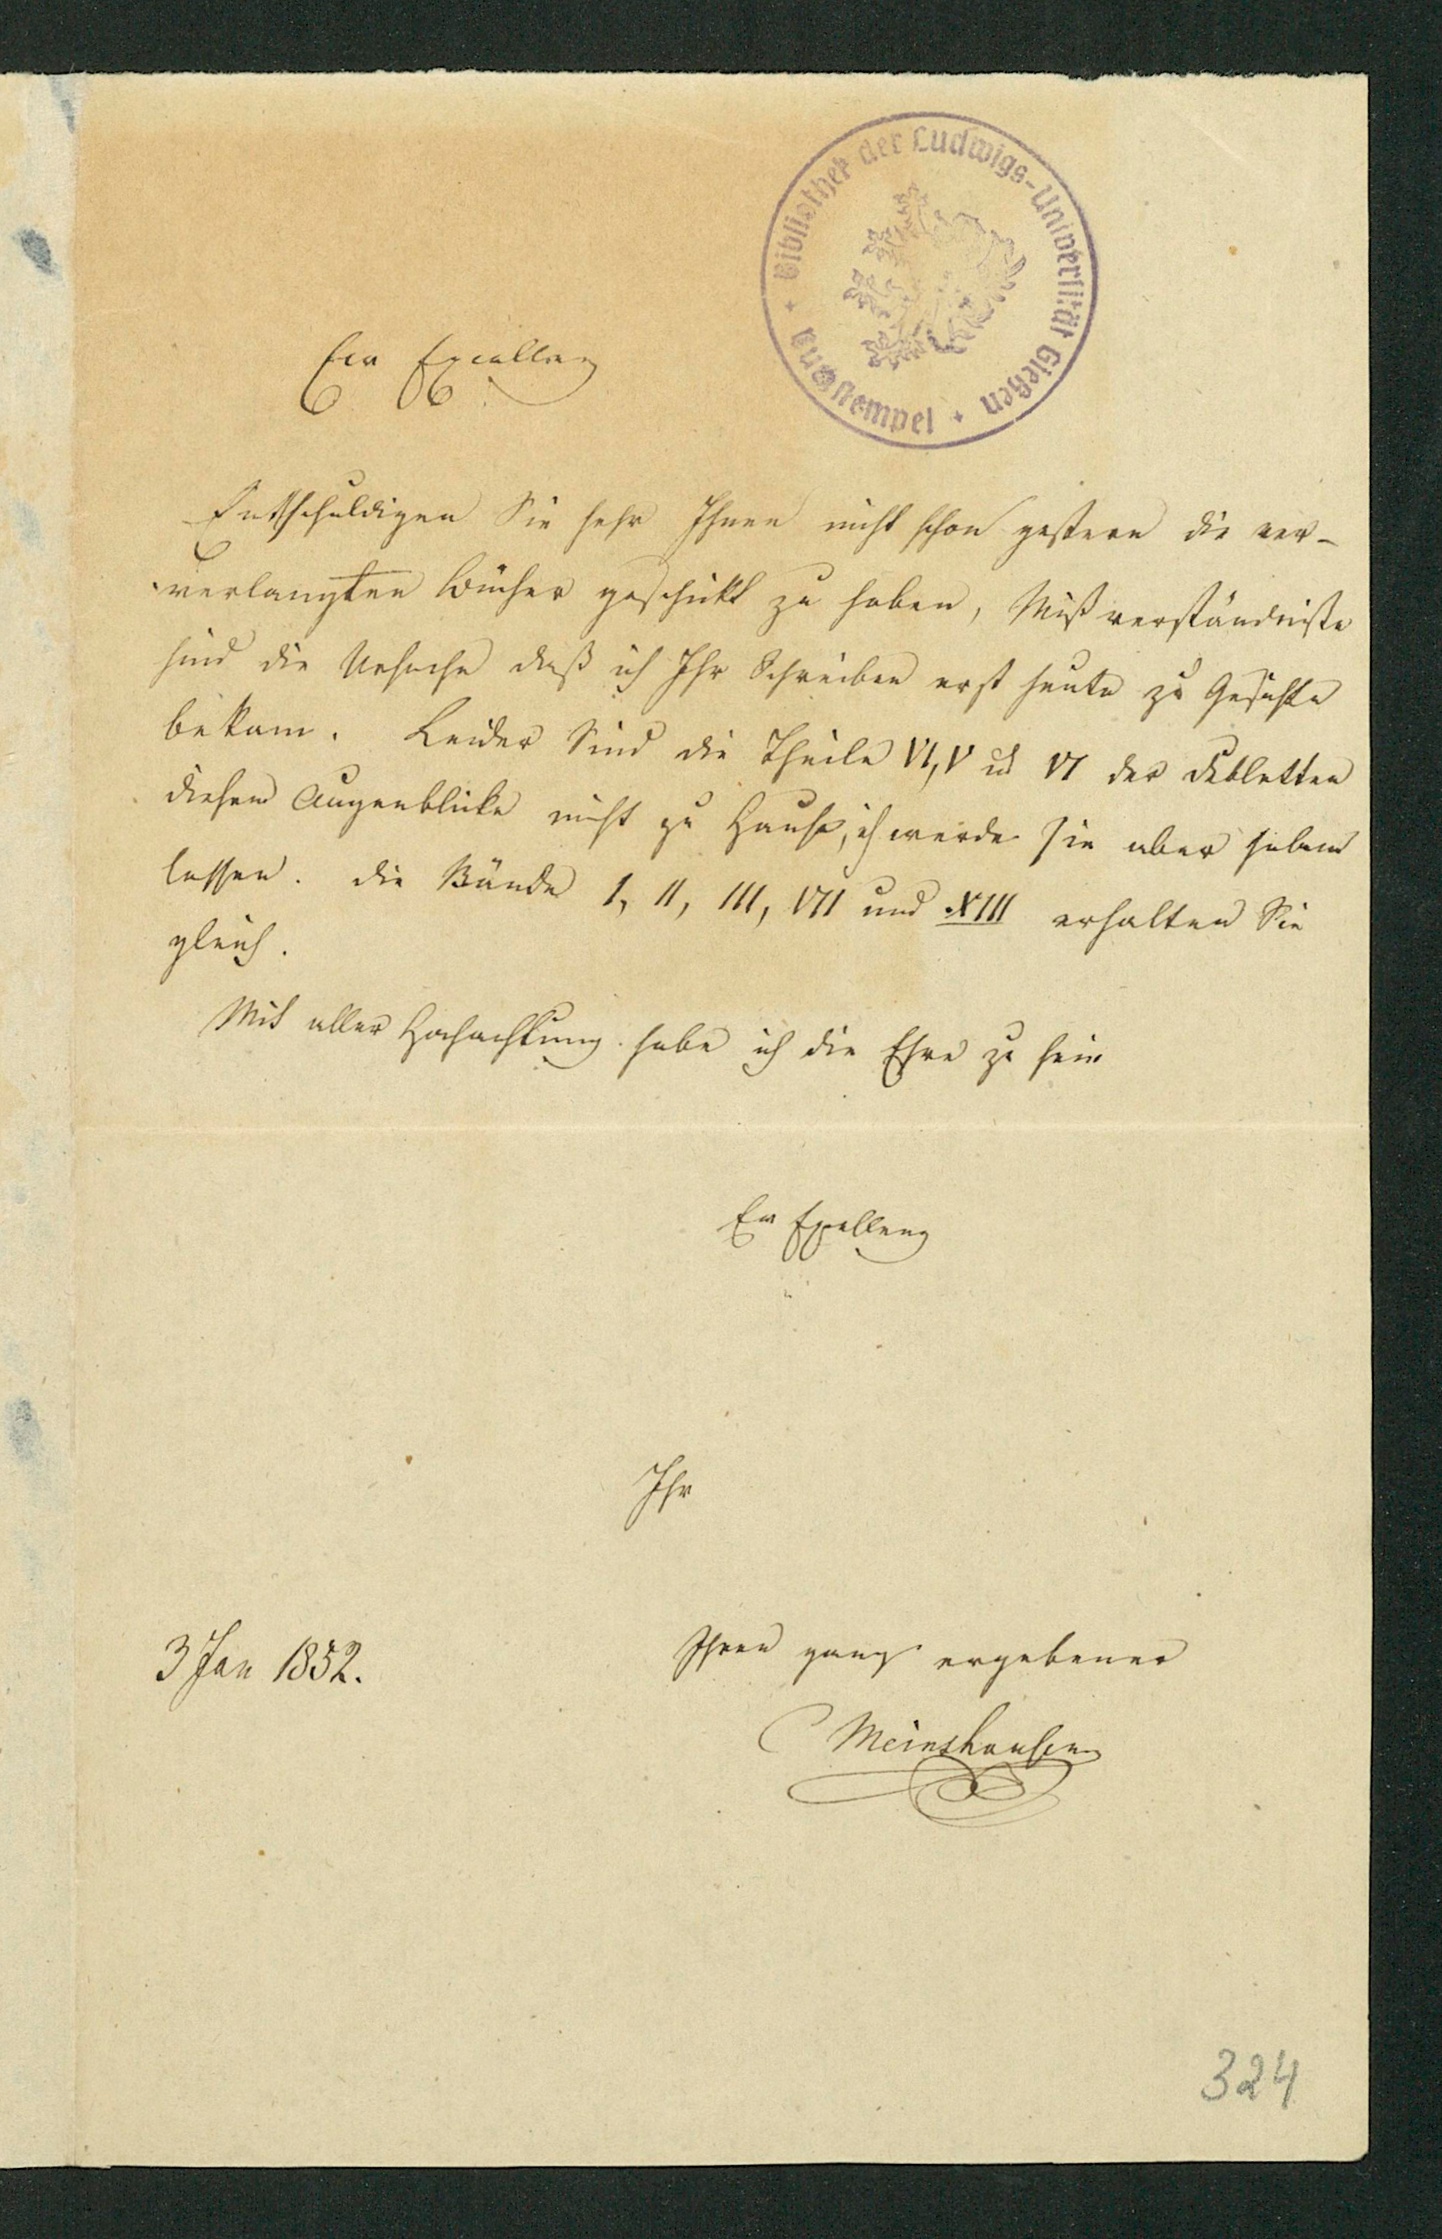 Bibliothek der Ludwigs-Universität Gießen
Ew Excellenz
Entschuldigen Sie sehr Ihnen nicht schon gestern die ver-
verlangten Bücher geschickt zu haben, Mißverständniße
sind die Ursache daß ich Ihr Schreiben erst heute zu Gesichte
bekam. Leider Sind die Theile VI, V u VI der
diesem Augenblicke nicht zu Hause, ich werde sie aber holen
lassen. die Bände I, II, III, VII und XIII erhalten Sie
gleich.
Mit aller Hochachtung habe ich die Ehre zu sein
Ew Exellenz
Ihr
3 Jan 1852.
Ihren ganz ergebener
C Meinshausen
324